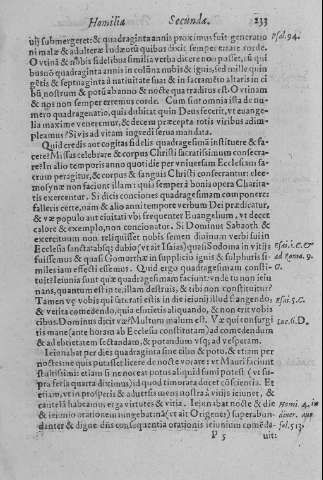 Homilia Secunda. 233
uijs submergeret: & quadraginta annis proximus fuit generatio
ni malæ & adulteræ Iudæorū quibus dixit semper errāt corde.
O vtinā & nobis fidelibus similia verba dicere non posset, si qui
busnō quadraginta annis in colūna nubis & ignis, sed mille quin
gētis & septuaginta à natiuitate suae & in sacramēto altaris in ci
bū nostrum & potū ab anno & nocte qua traditus est. O vtinam
& nos non semper erremus corde. Cum sint omnia ista de nu
mero quadragenario, qui dubitat quin Deus fecerit, vt euange
lia maxime veneremur, & decem præcepta totis viribus adim-
pleamus? Si vis ad vitam ingredi serua mandata.
Quid credis aut cogitas fidelis quadragesimā instituere & fa-
cere? Missas celebrare & corpus Christi sacratissimum consecra-
re? In alio tempore anno quotidie per vniuersam Ecclesiam sa-
crum peragitur, & corpus & sanguis Christi consecrantur: elee-
mosynæ non faciunt illam: quia semper à bonis opera Charita-
tis exercentur. Si dicis conciones quadragesimam componere:
falleris certe, nam & alio anni tempore verbum Dei prædicatur,
& væ populo aut ciuitati vbi frequenter Euangelium, vt decet
calore & exemplo, non concionator. Si Dominus Sabaoth &
exercituum non reliquisset nobis semen diuinum verbi sui in
Ecclesia sancta absq; dubio (vt ait Isaias) quasi Sodoma in vitijs
fuissemus & quasi Gomorrhæ in supplicio ignis & sulphuris si-
miles iam effecti essemus. Quid ergo quadragesimam consti-
tuit? Ieiunia sunt quæ quadragesimam faciunt. vnde tu non ieiu
nans, quantum est in te, illam destruis, & tibi non constituitur?
Tamen væ vobis qui saturati estis in die ieiunij illud frangendo,
& verita comedendo, quia esurietis aliquando, & non erit vobis
cibus. Dominus dicit væ? Multum malum est. Væ qui consurgi
tis mane (ante horam ab Ecclesia constitutam) ad comedendum
& ad ebrietatem sectandam, & potandum vsq; ad vesperam.
Ieiunabat per dies quadraginta sine cibo & potu, & etiam per
noctes ne quis putasset licere de nocte vorare: vt Mauri faciunt
stultissimi: etiam si ne noceat potus aliquid sumi potest (vt su
pra feria quarta diximus) id quod timorata docet cōscientia. Et
etiam, vt in prosperis & aduersis mens nostra à vitijs ieiunet, &
cautelā habeamus erga virtutes & vitia. Ieiunabat nocte & die
& ieiunio orationem iungebat in ā (vt ait Origenes) superabun-
danter & digne dñs consequentia orationis ieiunium comēda-
P 5 uit:
Psal. 94.
Esai. 1. C. &
ad Roma. 9.
Esai. 5. C.
Luc. 6. D.
Homi. 4. in
diuer.
fol. 513.